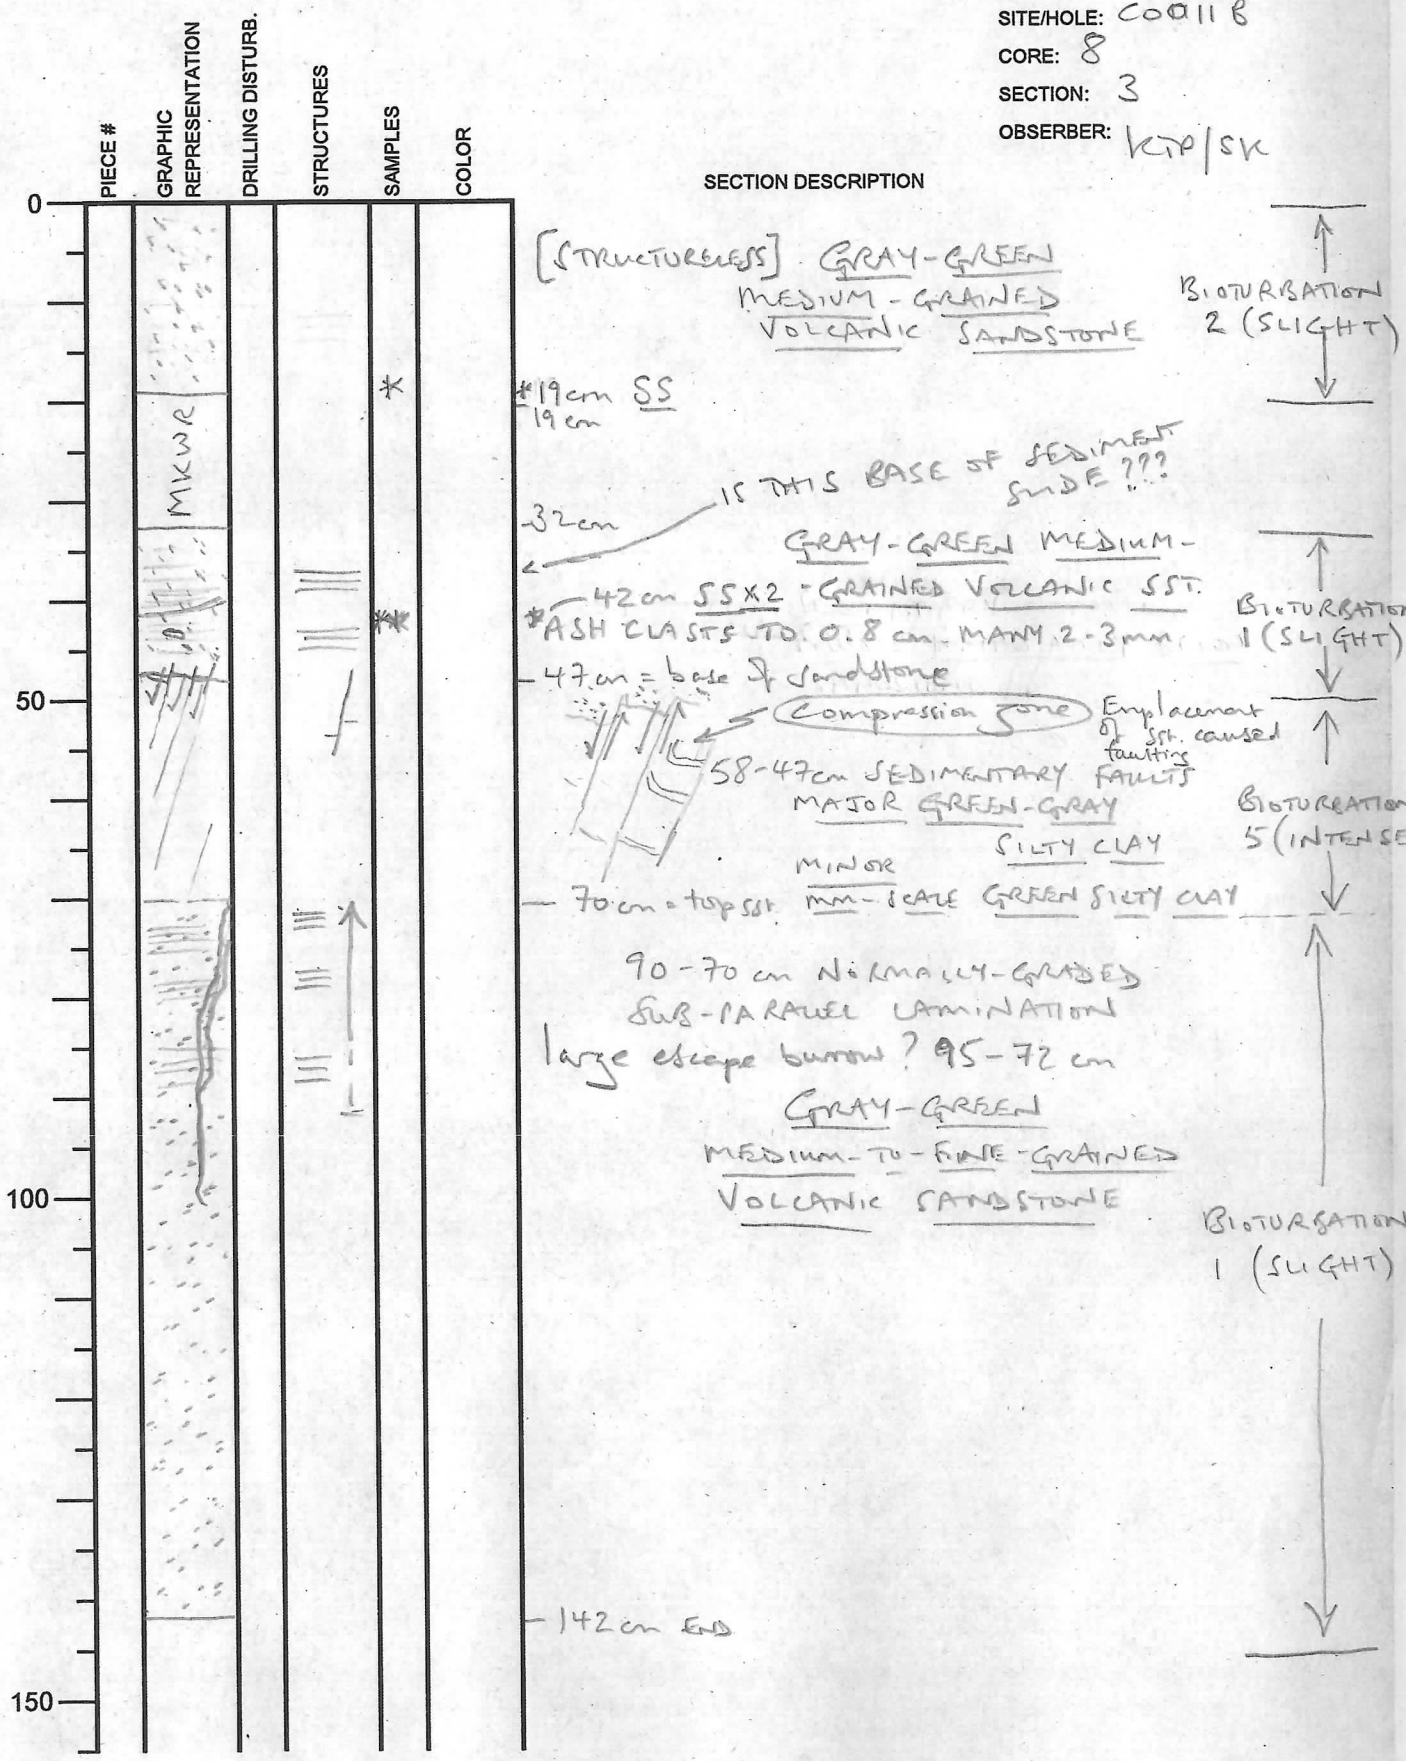 SITE/HOLE: C0011B
CORE: 8
SECTION: 3
OBSERBER: KTP/SK
PIECE #
GRAPHIC REPRESENTATION
DRILLING DISTURB.
STRUCTURES
SAMPLES
COLOR
SECTION DESCRIPTION
0
[STRUCTURELESS] GRAY-GREEN
MEDIUM-GRAINED
VOLCANIC SANDSTONE
BIOTURBATION
2 (SLIGHT)
*
*19cm SS
19cm
MKWR
IS THIS BASE OF SEDIMENT
SLIDE ???
32cm
GRAY-GREEN MEDIUM-
42cm SSX2 -GRAINED VOLCANIC SST.
**
*ASH CLASTS TO 0.8 cm. MANY 2-3mm
BIOTURBATION
1 (SLIGHT)
47cm = base of sandstone
50
Compression zone
Emplacement
of sst. caused
faulting
58-47cm SEDIMENTARY FAULTS
MAJOR GREEN-GRAY
SILTY CLAY
BIOTURBATION
5 (INTENSE
MINOR
70cm = top sst. mm-SCALE GREEN SILTY CLAY
90-70 cm NORMALLY-GRADED
SUB-PARALLEL LAMINATION
large escape burrow? 95-72 cm
GRAY-GREEN
MEDIUM-TO-FINE-GRAINED
VOLCANIC SANDSTONE
100
BIOTURBATION
1 (SLIGHT)
142cm END
150